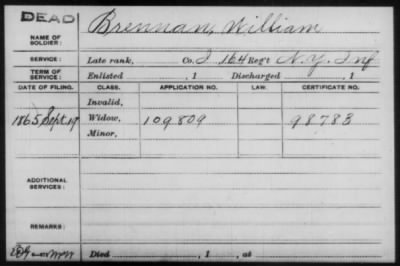 DEAD
NAME OF SOLDIER: Brennan, William
SERVICE: Late rank, Co. I 164 Reg't N.Y. Inf
TERM OF SERVICE: Enlisted , 1 Discharged , 1
DATE OF FILING. CLASS. APPLICATION NO. LAW. CERTIFICATE NO.
Invalid,
1865, Sept. 19 Widow, 109809 98783
Minor,
ADDITIONAL SERVICES:
REMARKS:
Died , 1 , at